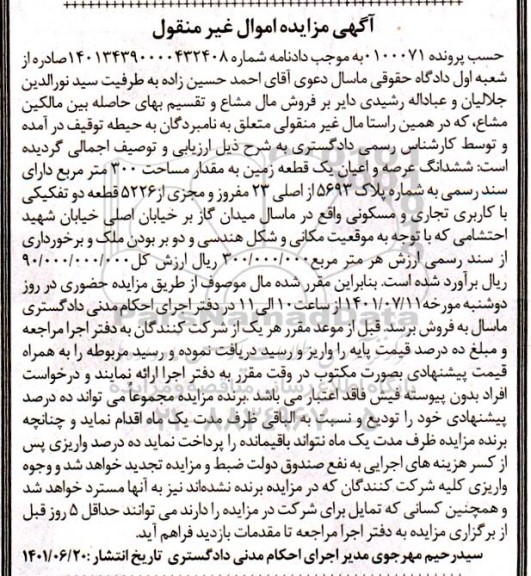 آگهی مزایده اموال غیر منقول
حسب پرونده ۰۱۰۰۰۷۱به موجب دادنامه شماره ۱۴۰۱۳۴۳۹۰۰۰۰۴۳۲۴۰۸صادره از
شعبه اول دادگاه حقوقی ماسال دعوی آقای احمد حسین زاده به طرفیت سید نورالدین
جلالیان و عباداله رشیدی دایر بر فروش مال مشاع و تقسیم بهای حاصله بین مالکین
مشاع، که در همین راستا مال غیر منقولی متعلق به نامبردگان به حیطه توقیف در آمده
و توسط کارشناس رسمی دادگستری به شرح ذیل ارزیابی و توصیف اجمالی گردیده
است: ششدانگ عرصه و اعیان یک قطعه زمین به مقدار مساحت ۳۰۰ متر مربع دارای
سند رسمی به شماره پلاک ۵۶۹۳ از اصلی ۲۳ مفروز و مجزی از ۵۲۲۶ قطعه دو تفکیکی
با کاربری تجاری و مسکونی واقع در ماسال میدان گاز بر خیابان اصلی خیابان شهید
احتشامی که با توجه به موقعیت مکانی و شکل هندسی و دو بر بودن ملک و برخورداری
از سند رسمی ارزش هر متر مربع ۳۰۰/۰۰۰/۰۰۰ ریال ارزش کل ۹۰/۰۰۰/۰۰۰/۰۰۰
ریال برآورد شده است. بنابراین مقرر شده مال موصوف از طریق مزایده حضوری در روز
دوشنبه مورخه ۱۴۰۱/۰۷/۱۱ از ساعت ۱۰ الی ۱۱ در دفتر اجرای احکام مدنی دادگستری
ماسال به فروش برسد. قبل از موعد مقرر هر یک از شرکت کنندگان به دفتر اجرا مراجعه
و مبلغ ده درصد قیمت پایه را واریز و رسید دریافت نموده و رسید مربوطه را به همراه
قیمت پیشنهادی بصورت مکتوب در وقت مقرر به دفتر اجرا ارائه نمایند و درخواست
افراد بدون پیوسته فیش فاقد اعتبار می باشد .برنده مزایده مجموعاً می تواند ده درصد
پیشنهادی خود را تودیع و نسبت به الباقی ظرف مدت یک ماه اقدام نماید و چنانچه
برنده مزایده ظرف مدت یک ماه نتواند باقیمانده را پرداخت نماید ده درصد واریزی پس
از کسر هزینه های اجرایی به نفع صندوق دولت ضبط و مزایده تجدید خواهد شد و وجوه
واریزی کلیه شرکت کنندگان که در مزایده برنده نشده‌اند نیز به آنها مسترد خواهد شد
و همچنین کسانی که تمایل برای شرکت در مزایده را دارند می توانند حداقل ۵ روز قبل
از برگزاری مزایده به دفتر اجرا مراجعه تا مقدمات بازدید فراهم آید.
سیدرحیم مهرجوی مدیر اجرای احکام مدنی دادگستری تاریخ انتشار :۱۴۰۱/۰۶/۲۰